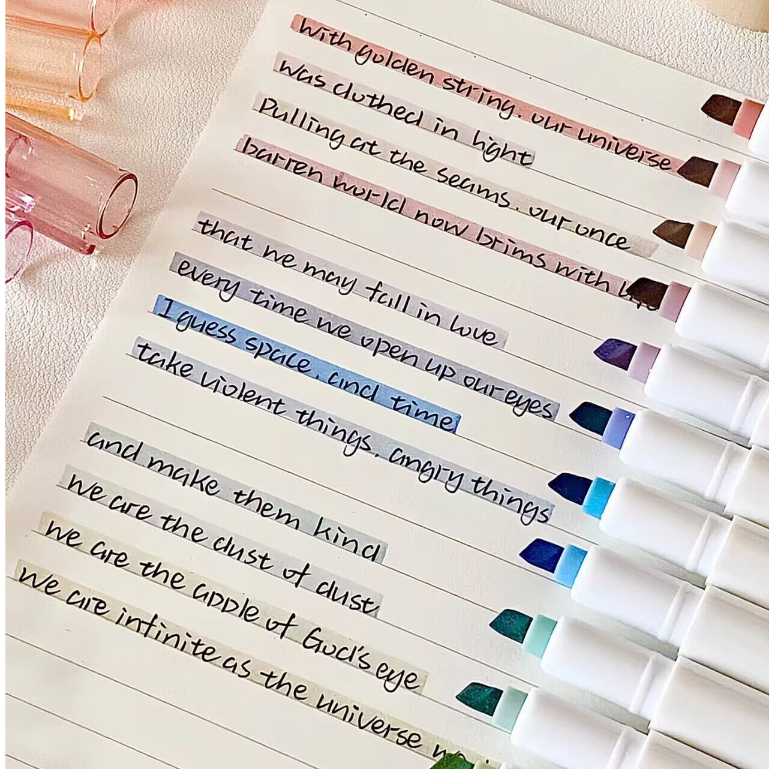 With golden string. our universe
was clothed in light
Pulling at the seams. our once
barren world now brims with
that we may fall in love
every time we open up our eyes
I guess space, and time
take violent things, angry things
and make them kind
we are the dust of dust
we are the apple of God's eye
we are infinite as the universe